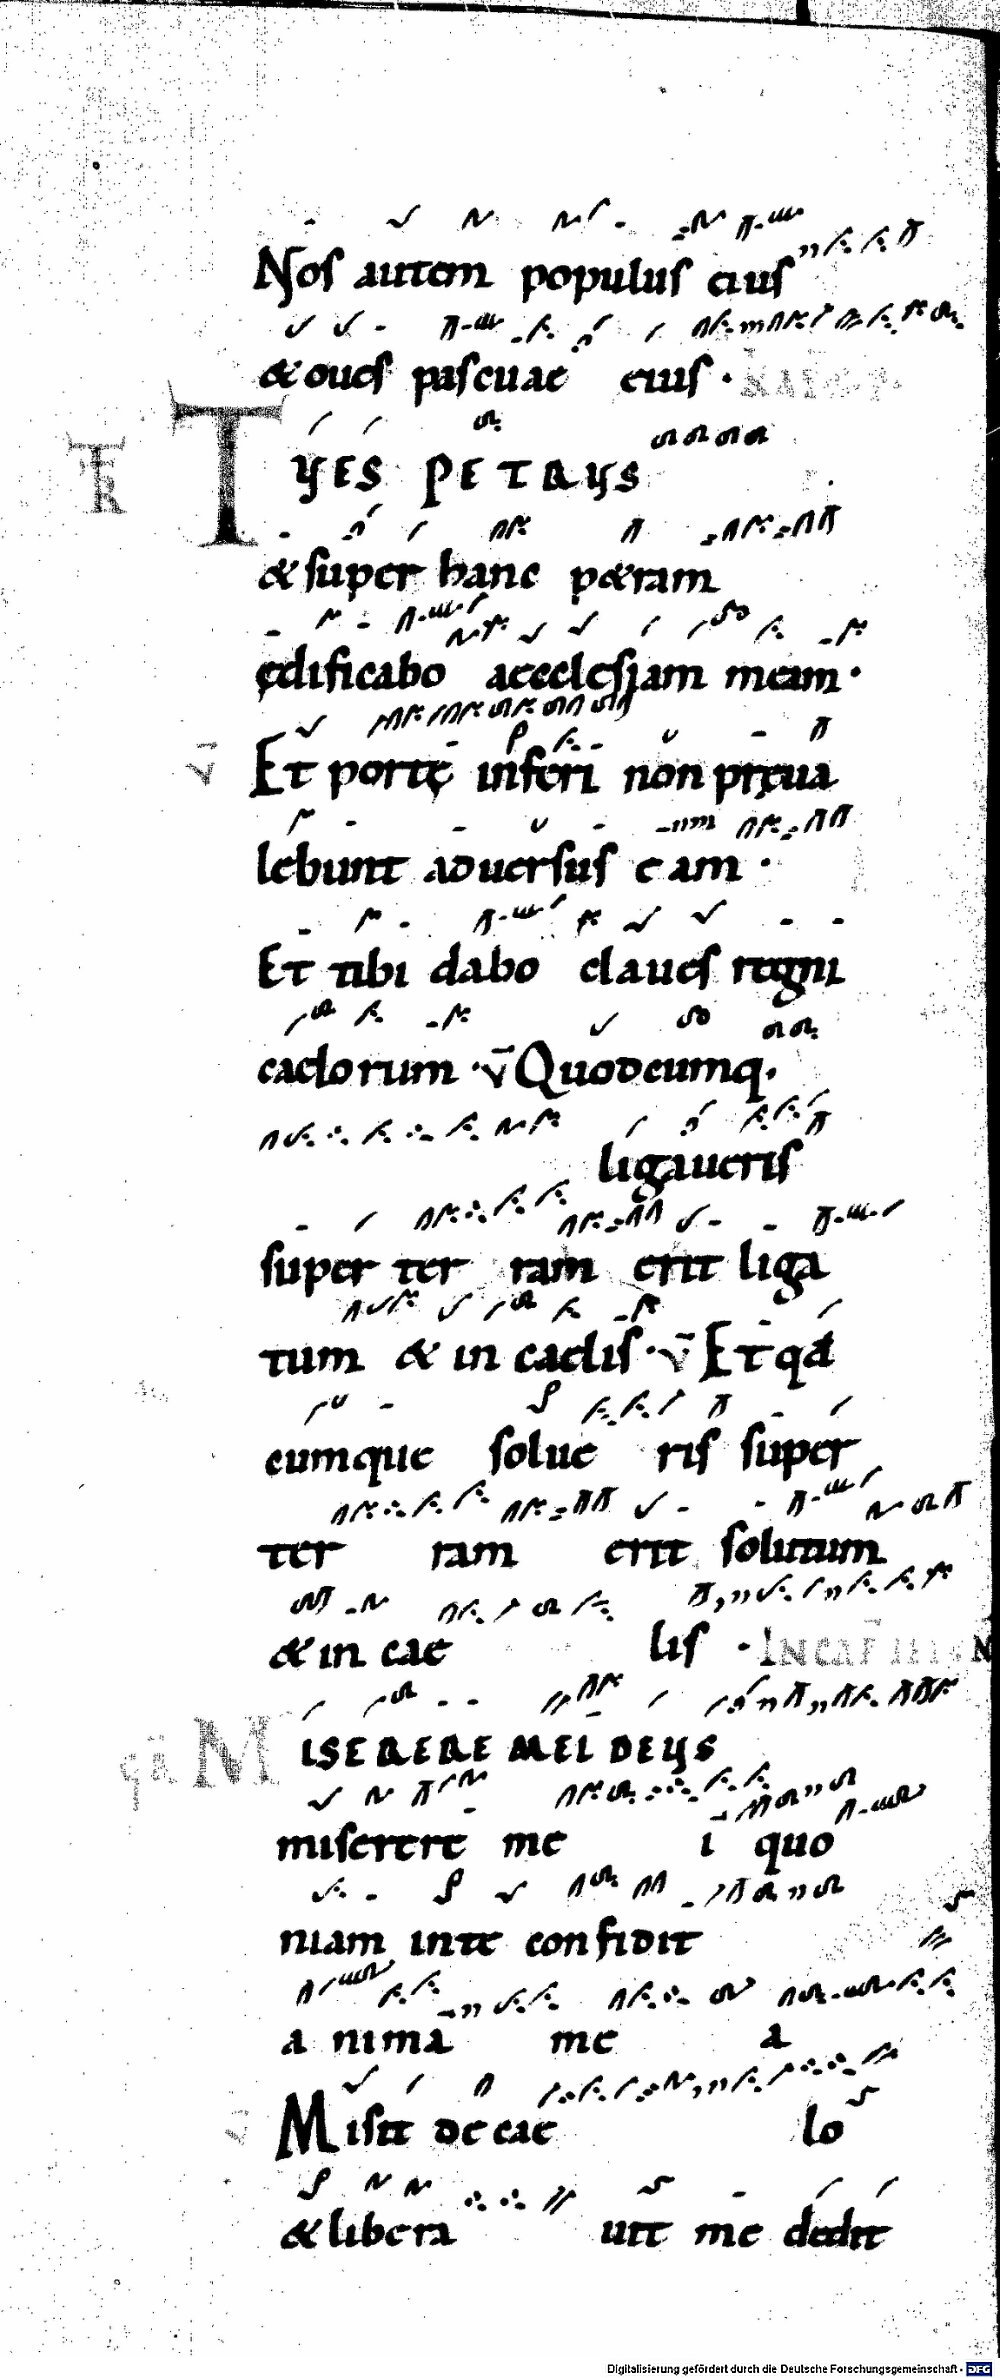 Nos autem populus eius
& oues pascuae eius ·
TR TVES PETRVS
& super hanc p&ram
ędificabo aecclesiam meam ·
V Et portę inferi non pręua
lebunt aduersus eam ·
Et tibi dabo claues regni
caelorum · V Quodcumq.
ligaueris
super ter ram erit liga
tum & in caelis · V Et qđ
cumque solue ris super
ter ram erit solutum
& in cae lis ·
M ISERERE MEI DEVS
miserere me i quo
niam in te confidit
anima me a
V Misit de cae lo
& libera uit me dedit
Digitalisierung gefördert durch die Deutsche Forschungsgemeinschaft - DFG